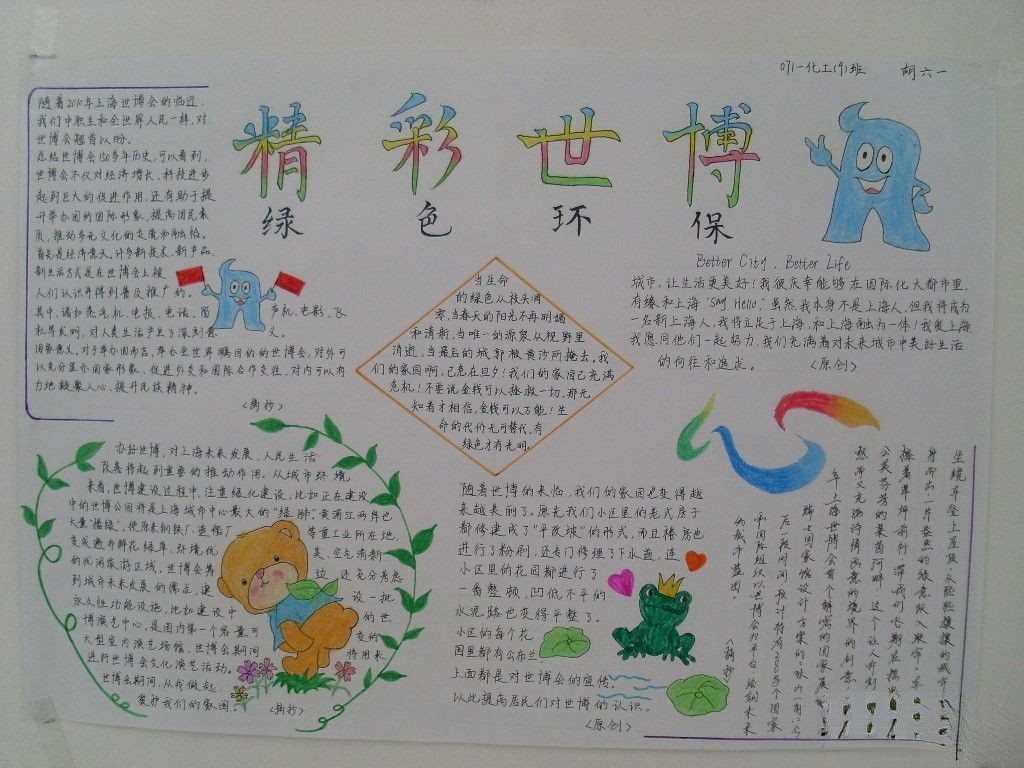 071-化工(9)班 胡六一
精彩世博
绿色环保
随着2010年上海世博会的临近,
我们中职生和全世界人民一样,对
世博会翘首以盼。
总结世博会150多年历史,可以看到,
世博会不仅对经济增长,科技进步
起到巨大的促进作用,还有助于提
升举办国的国际形象,提高国民素
质,推动多元文化的交流和融恰。
首先是经济意义,许多新技术、新产品、
新生活方式是在世博会上被
人们认识并得到普及推广的。
其中,诸如蒸汽机、电报、电话、留声机、电影、飞
机等发明,对人类生活产生了深刻意义。
国家意义,对于举办国而言,举办全世界瞩目的的世博会,对外可
以充分显办国家形象,促进外交和国际合作交往,对内可以有
力地凝聚人心,提升民族精神。
<摘抄>
当生命
的绿色从枝头凋
零,当春天的阳光不再明媚
和清新,当唯一的源泉从视野里
消逝,当最后的城郭被黄沙所掩去,我
们的家园啊,已危在旦夕!我们的家园已充满
危机!不要说金钱可以拯救一切,那无
知者才相信,金钱可以万能!生
命的代价无可替代,有
绿色才有光明。
Better City, Better Life
城市,让生活更美好!我很庆幸能够在国际化大都市里,
有缘和上海"Say Hello,"虽然我本身不是上海人,但我将成为
一名新上海人,我将立足于上海,和上海融为一体!我爱上海
我愿同他们一起努力,我们充满着对未来城市中美好生活
的向往和追求。 <原创>
办好世博,对上海未来发展、人民生活
改善将起到重要的推动作用。从城市环境
来看,世博建设过程中,注重绿化建设,比如正在建设
中的世博公园将是上海城市中心最大的"绿肺",黄浦江两岸也
大量"播绿",使原来钢铁厂、造船厂等重工业所在地,
变成遍布鲜花绿草、环境优美、空气清新
的休闲旅游区域,世博会筹边,还充分考虑
到城市未来发展的需要,建设一批
永久性功能设施,比如建设中的世
博演艺中心,是国内第一个容量可变的
大型室内演艺场馆,世博会期间将用来
进行世博会文化演艺活动。
世博会期间,从我做起
爱护我们的家园。 <摘抄>
随着世博的来临,我们的家园也变得越
来越美丽了。原先我们小区里的老式房子
都修建成了"平改坡"的形式,而且楼房也
进行了粉刷,还专门修理了下水道,连
小区里的花园都进行了
一番整顿,凹低不平的
水泥路也变得平整了。
小区的每个花
园里都有公布兰,
上面都是对世博会的宣传,
以此提高居民们对世博的认识。
<原创>
和国际组织以世博会为平台,绘制未来
的城市蓝图。
<摘抄>